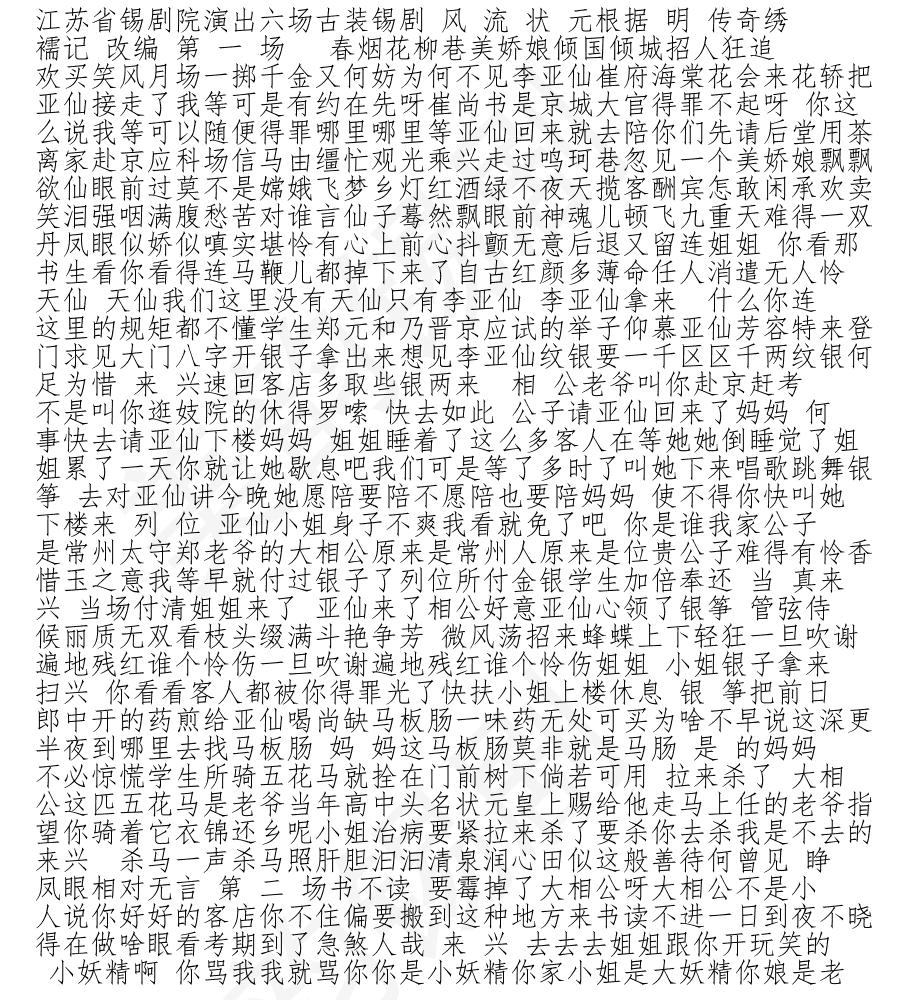 江苏省锡剧院演出六场古装锡剧 风 流 状 元根据 明 传奇绣
襦记 改编 第 一 场 春烟花柳巷美娇娘倾国倾城招人狂追
欢买笑风月场一掷千金又何妨为何不见李亚仙崔府海棠花会来花轿把
亚仙接走了我等可是有约在先呀崔尚书是京城大官得罪不起呀 你这
么说我等可以随便得罪哪里哪里等亚仙回来就去陪你们先请后堂用茶
离家赴京应科场信马由缰忙观光乘兴走过鸣珂巷忽见一个美娇娘飘飘
欲仙眼前过莫不是嫦娥飞梦乡灯红酒绿不夜天揽客酬宾怎敢闲承欢卖
笑泪强咽满腹愁苦对谁言仙子蓦然飘眼前神魂儿顿飞九重天难得一双
丹凤眼似娇似嗔实堪怜有心上前心抖颤无意后退又留连姐姐 你看那
书生看你看得连马鞭儿都掉下来了自古红颜多薄命任人消遣无人怜
天仙 天仙我们这里没有天仙只有李亚仙 李亚仙拿来 什么你连
这里的规矩都不懂学生郑元和乃晋京应试的举子仰慕亚仙芳容特来登
门求见大门八字开银子拿出来想见李亚仙纹银要一千区区千两纹银何
足为惜 来 兴速回客店多取些银两来 相 公老爷叫你赴京赶考
不是叫你逛妓院的休得罗嗦 快去如此 公子请亚仙回来了妈妈 何
事快去请亚仙下楼妈妈 姐姐睡着了这么多客人在等她她倒睡觉了姐
姐累了一天你就让她歇息吧我们可是等了多时了叫她下来唱歌跳舞银
筝 去对亚仙讲今晚她愿陪要陪不愿陪也要陪妈妈 使不得你快叫她
下楼来 列 位 亚仙小姐身子不爽我看就免了吧 你是谁我家公子
是常州太守郑老爷的大相公原来是常州人原来是位贵公子难得有怜香
惜玉之意我等早就付过银子了列位所付金银学生加倍奉还 当 真来
兴 当场付清姐姐来了 亚仙来了相公好意亚仙心领了银筝 管弦侍
候丽质无双看枝头缀满斗艳争芳 微风荡招来蜂蝶上下轻狂一旦吹谢
遍地残红谁个怜伤一旦吹谢遍地残红谁个怜伤姐姐 小姐银子拿来
扫兴 你看看客人都被你得罪光了快扶小姐上楼休息 银 筝把前日
郎中开的药煎给亚仙喝尚缺马板肠一味药无处可买为啥不早说这深更
半夜到哪里去找马板肠 妈 妈这马板肠莫非就是马肠 是 的妈妈
不必惊慌学生所骑五花马就拴在门前树下倘若可用 拉来杀了 大相
公这匹五花马是老爷当年高中头名状元皇上赐给他走马上任的老爷指
望你骑着它衣锦还乡呢小姐治病要紧拉来杀了要杀你去杀我是不去的
来兴 杀马一声杀马照肝胆汩汩清泉润心田似这般善待何曾见 睁
凤眼相对无言 第 二 场书不读 要霉掉了大相公呀大相公不是小
人说你好好的客店你不住偏要搬到这种地方来书读不进一日到夜不晓
得在做啥眼看考期到了急煞人哉 来 兴 去去去姐姐跟你开玩笑的
小妖精啊 你骂我我就骂你你是小妖精你家小姐是大妖精你娘是老